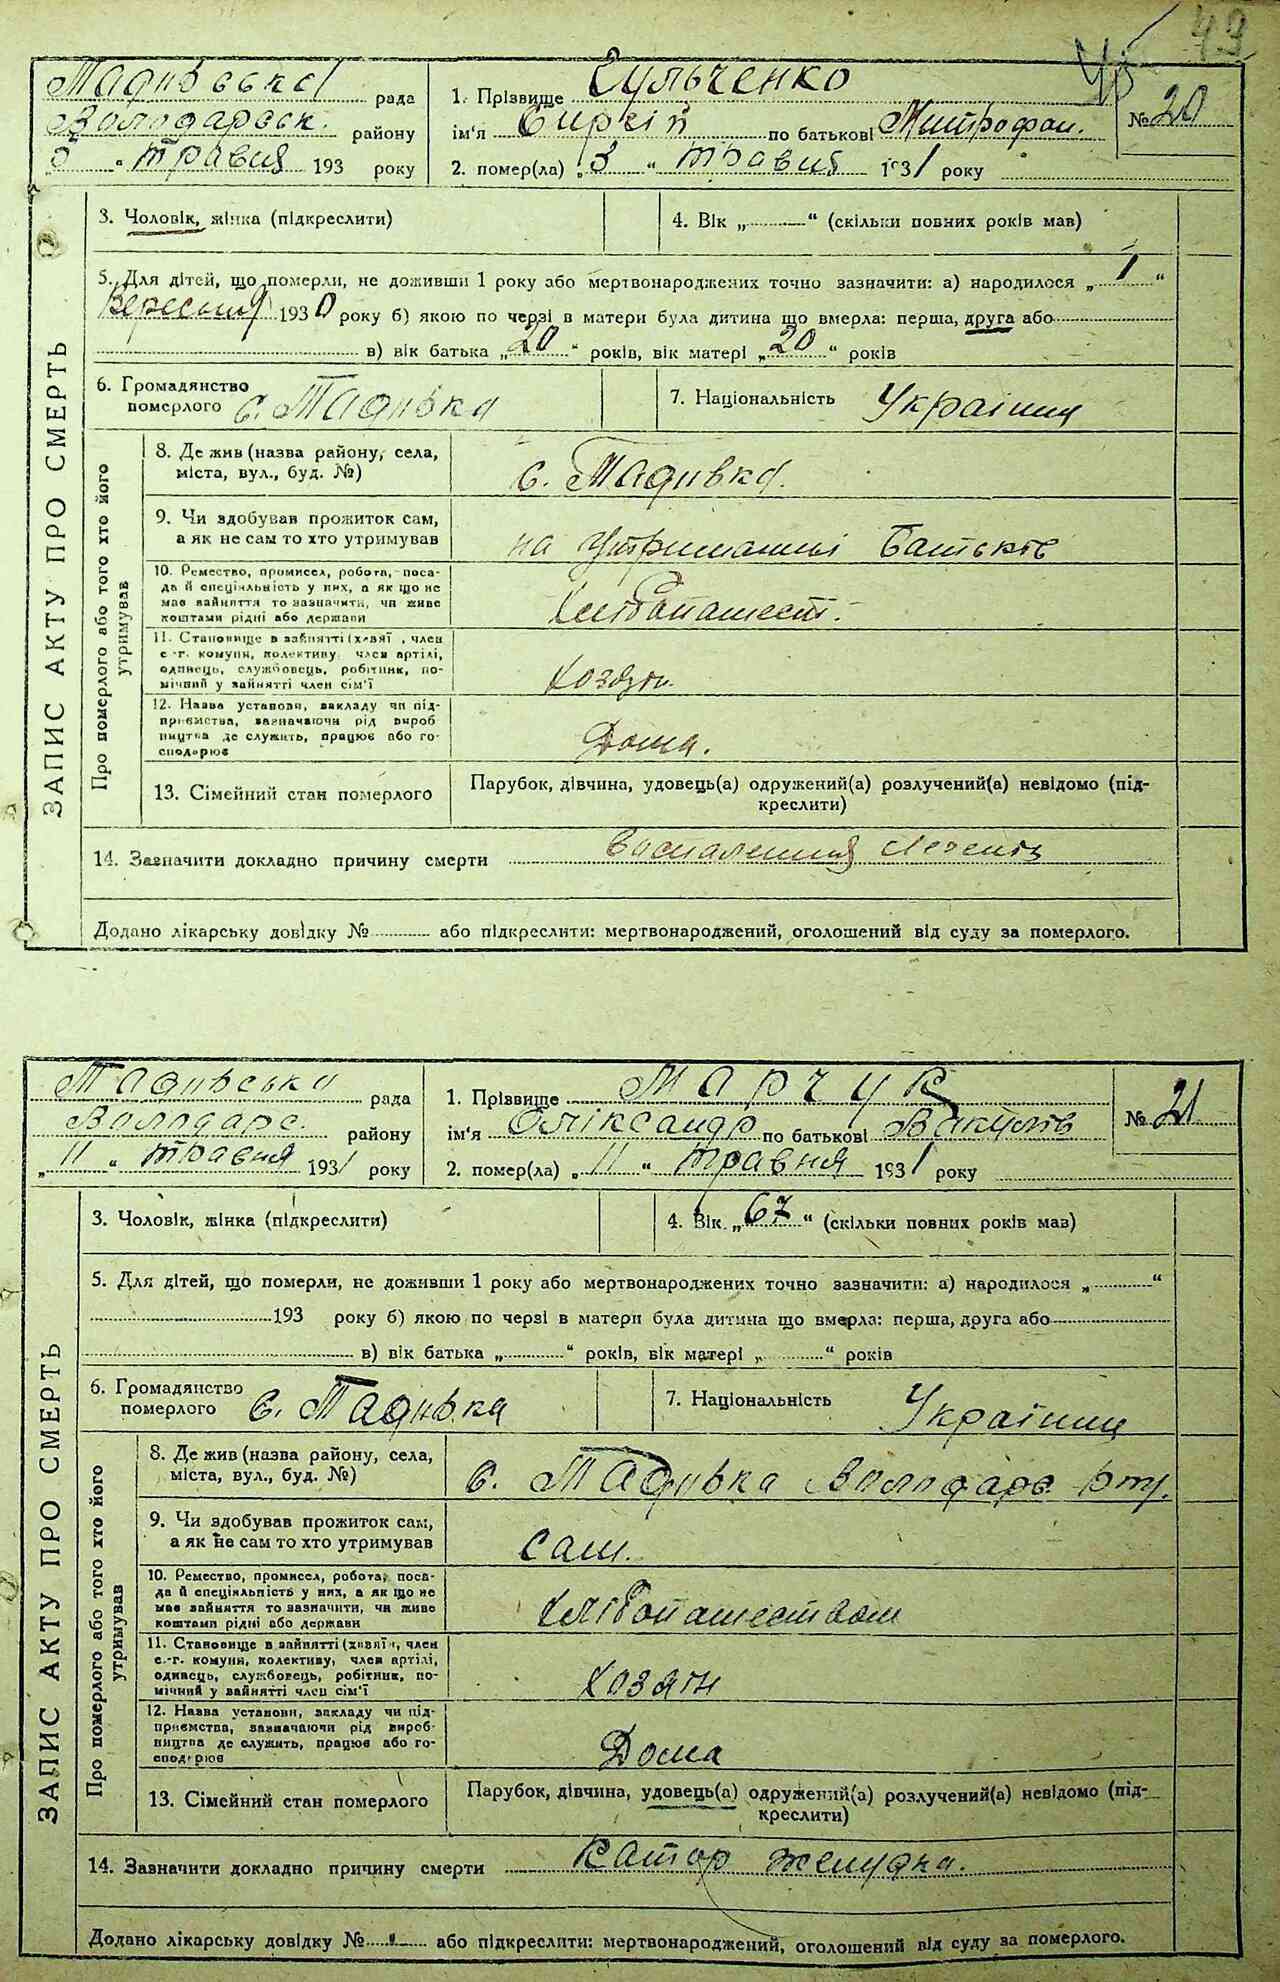 43
Тадиївська рада
Володарськ. району
3 " травня 193 року
1. Прізвище Сульченко
ім'я Сиргій по батькові Митрофан.
2. помер(ла) „ 3 " травня 1931 року
№ 20
3. Чоловік, жінка (підкреслити)
4. Вік „ " (скільки повних років мав)
5. Для дітей, що померли, не доживши 1 року або мертвонароджених точно зазначити: а) народилося „ 1 "
Вересня 1930 року б) якою по черзі в матери була дитина що вмерла: перша, друга або
в) вік батька „ 20 " років, вік матері „ 20 " років
6. Громадянство
померлого с. Тадиівка
7. Національність Украінец
ЗАПИС АКТУ ПРО СМЕРТЬ
Про померлого або того хто його
утримував
8. Де жив (назва району, села,
міста, вул., буд. №)
с. Тадиівка.
9. Чи здобував прожиток сам,
а як не сам то хто утримував
на утриманні Батьків
10. Ремество, промисел, робота, поса-
да й спеціяльність у них, а як що не
має зайняття то зазначити, чи живе
коштами рідні або держави
Хлібопашест.
11. Становище в зайнятті (хазяї , член
с.-г. комуни, колективу, член артілі,
одинець, службовець, робітник, по-
мічний у зайнятті член сім'ї
Хозяін
12. Назва установи, закладу чи під-
приємства, зазначаючи рід вироб
ництва де служить, працює або го-
сподарює
Дома.
13. Сімейний стан померлого
Парубок, дівчина, удовець(а) одружений(а) розлучений(а) невідомо (під-
креслити)
14. Зазначити докладно причину смерти Воспаления Легенів
Додано лікарську довідку № або підкреслити: мертвонароджений, оголошений від суду за померлого.
Тадиівська рада
Володарс. району
„ 11 " травня 1931 року
1. Прізвище Марчук
ім'я Оліксандр по батькові Вакулів
2. помер(ла) „ 11 " травня 1931 року
№ 21
3. Чоловік, жінка (підкреслити)
4. Вік „ 67 " (скільки повних років мав)
5. Для дітей, що померли, не доживши 1 року або мертвонароджених точно зазначити: а) народилося „ "
193 року б) якою по черзі в матери була дитина що вмерла: перша, друга або
в) вік батька „ " років, вік матері „ " років
6. Громадянство
померлого с. Тадиівка
7. Національність Украінец
ЗАПИС АКТУ ПРО СМЕРТЬ
Про померлого або того хто його
утримував
8. Де жив (назва району, села,
міста, вул., буд. №)
с. Тадиівка Володарс
9. Чи здобував прожиток сам,
а як не сам то хто утримував
Сам.
10. Ремество, промисел, робота, поса-
да й спеціяльність у них, а як що не
має зайняття то зазначити, чи живе
коштами рідні або держави
Хлібопашеством
11. Становище в зайнятті (хазяїн, член
с.-г. комуни, колективу, член артілі,
одинець, службовець, робітник, по-
мічний у зайнятті член сім'ї
Хозяін
12. Назва установи, закладу чи під-
приємства, зазначаючи рід вироб-
ництва де служить, працює або го-
сподарює
Дома
13. Сімейний стан померлого
Парубок, дівчина, удовець(а) одружений(а) розлучений(а) невідомо (під-
креслити)
14. Зазначити докладно причину смерти Катар желудка.
Додано лікарську довідку № або підкреслити: мертвонароджений, оголошений від суду за померлого.